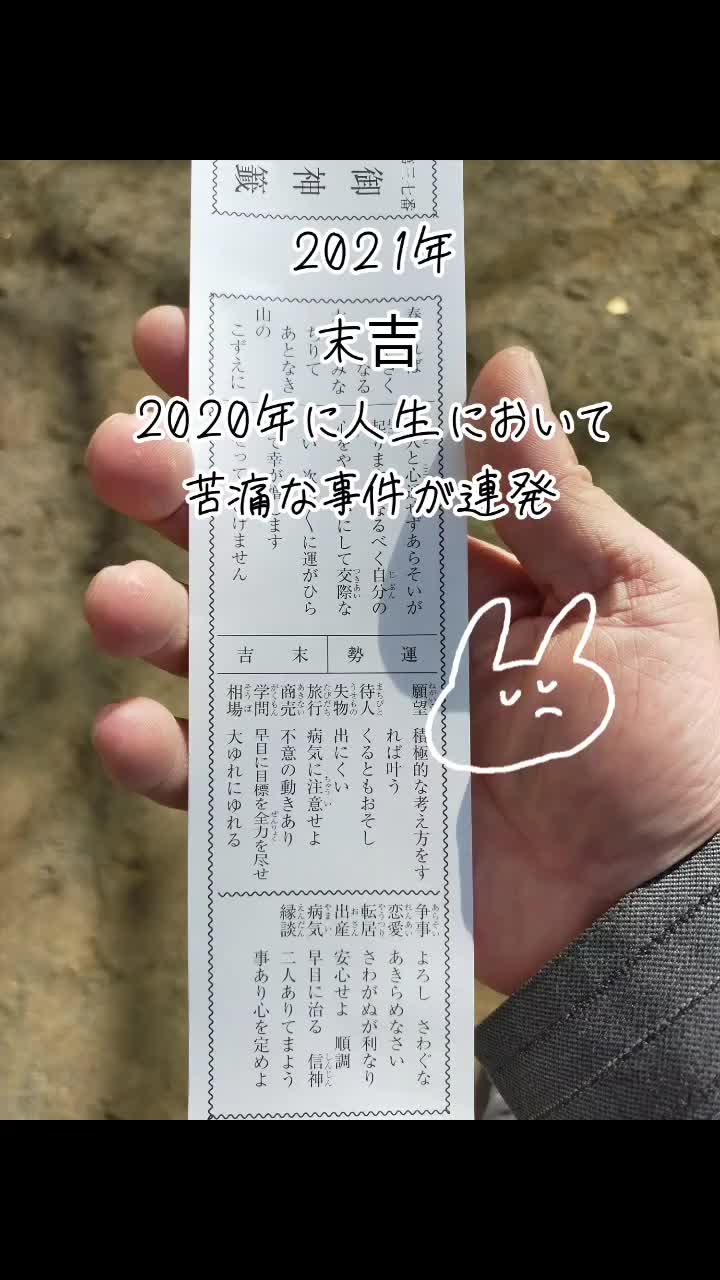 2021年
末吉
2020年に人生において
苦痛な事件が連発
三七番
御神籤
さく
なる
みな
ちりて
あとなき
山の
こずえに
人と心 ずあらそいが
起りま なるべく自分の
心をや にして交際な
い 次 くに運がひら
て幸が ます
って けません
運勢 末吉
願望 積極的な考え方をす
れば叶う
待人 くるともおそし
失物 出にくい
旅行 病気に注意せよ
商売 不意の動きあり
学問 早目に目標を全力を尽せ
相場 大ゆれにゆれる
争事 よろし さわぐな
恋愛 あきらめなさい
転居 さわがぬが利なり
出産 安心せよ 順調
病気 早目に治る 信神
縁談 二人ありてまよう
事あり心を定めよ